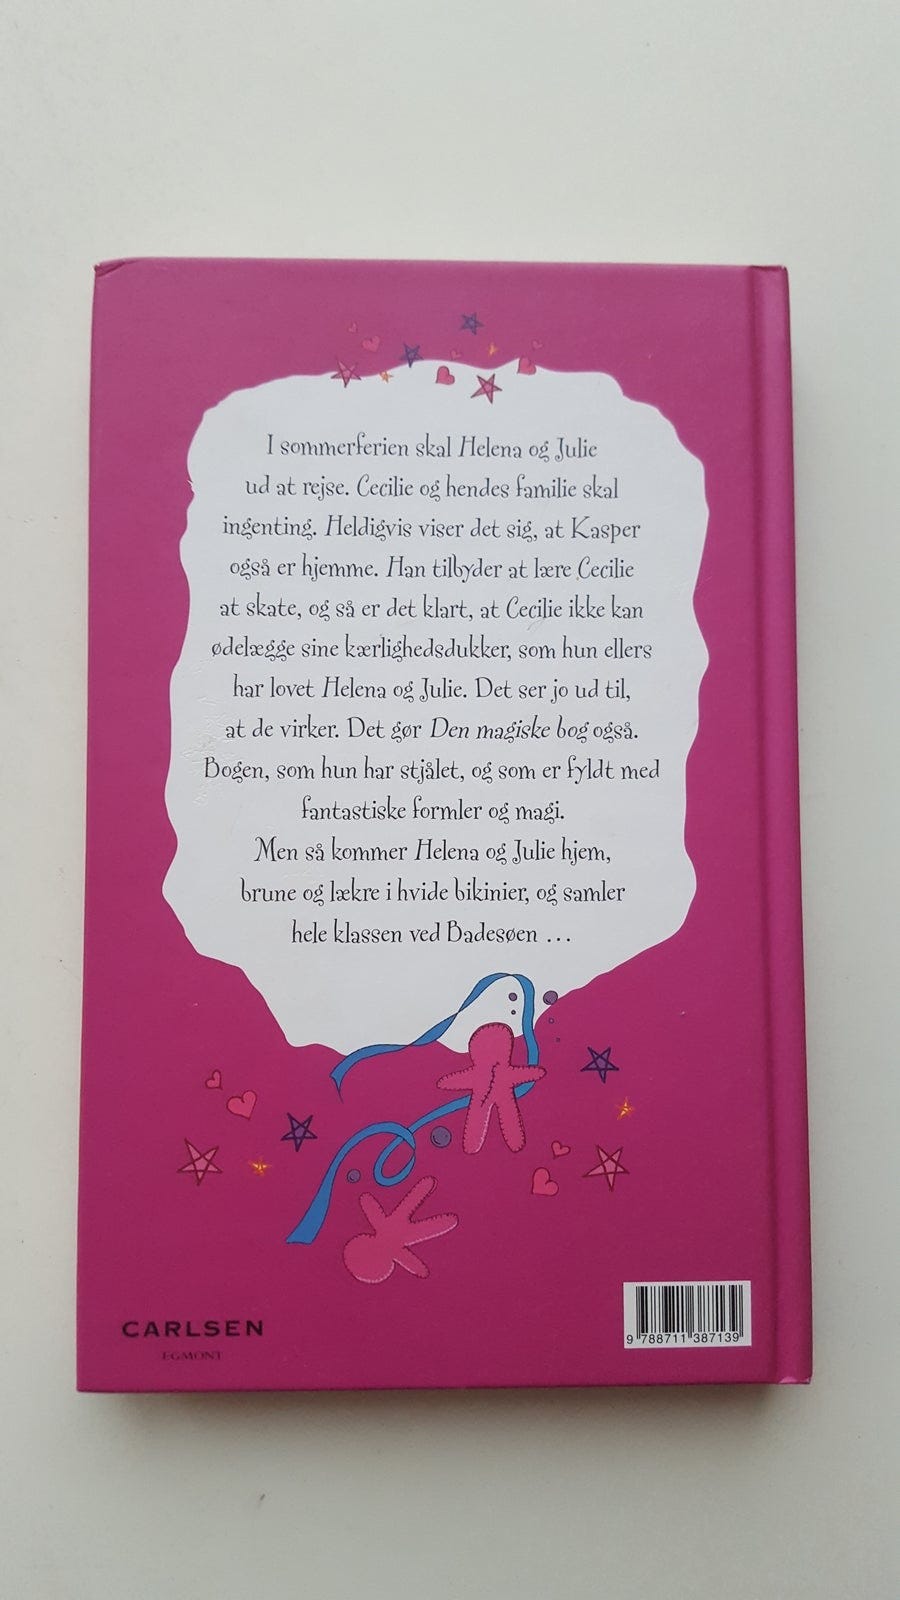 I sommerferien skal Helena og Julie
ud at rejse. Cecilie og hendes familie skal
ingenting. Heldigvis viser det sig, at Kasper
også er hjemme. Han tilbyder at lære Cecilie
at skate, og så er det klart, at Cecilie ikke kan
ødelægge sine kærlighedsdukker, som hun ellers
har lovet Helena og Julie. Det ser jo ud til,
at de virker. Det gør Den magiske bog også.
Bogen, som hun har stjålet, og som er fyldt med
fantastiske formler og magi.
Men så kommer Helena og Julie hjem,
brune og lækre i hvide bikinier, og samler
hele klassen ved Badesøen ...
CARLSEN
EGMONT
9 788711 387139